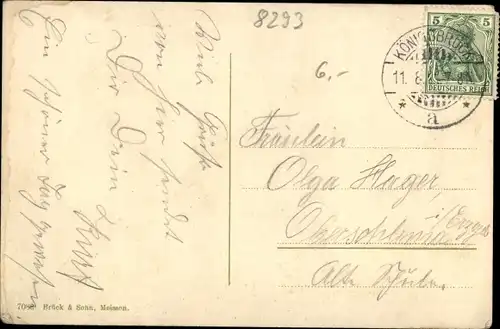 8293
6.-
5 5
DEUTSCHES REICH
KÖNIGSBRÜCK
11. 8.
a
Viele Grüße
von hier sendet
Dir Dein
Kurt
Ein schöner Tag gewesen
Fräulein
Olga Hager,
Oberschlema
i/Erzgeb.
Alte Schule.
Brück & Sohn, Meissen.